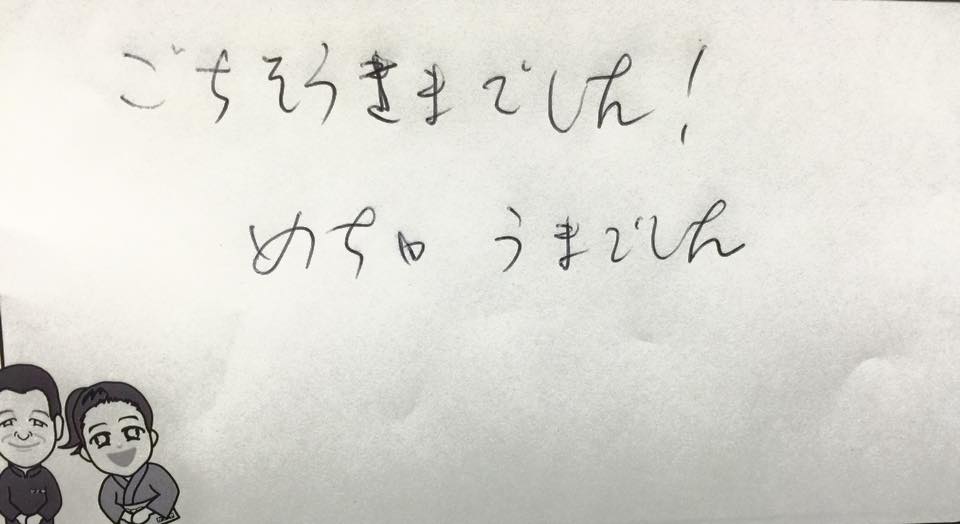 ごちそうさまでした！
めちゃ うまでした